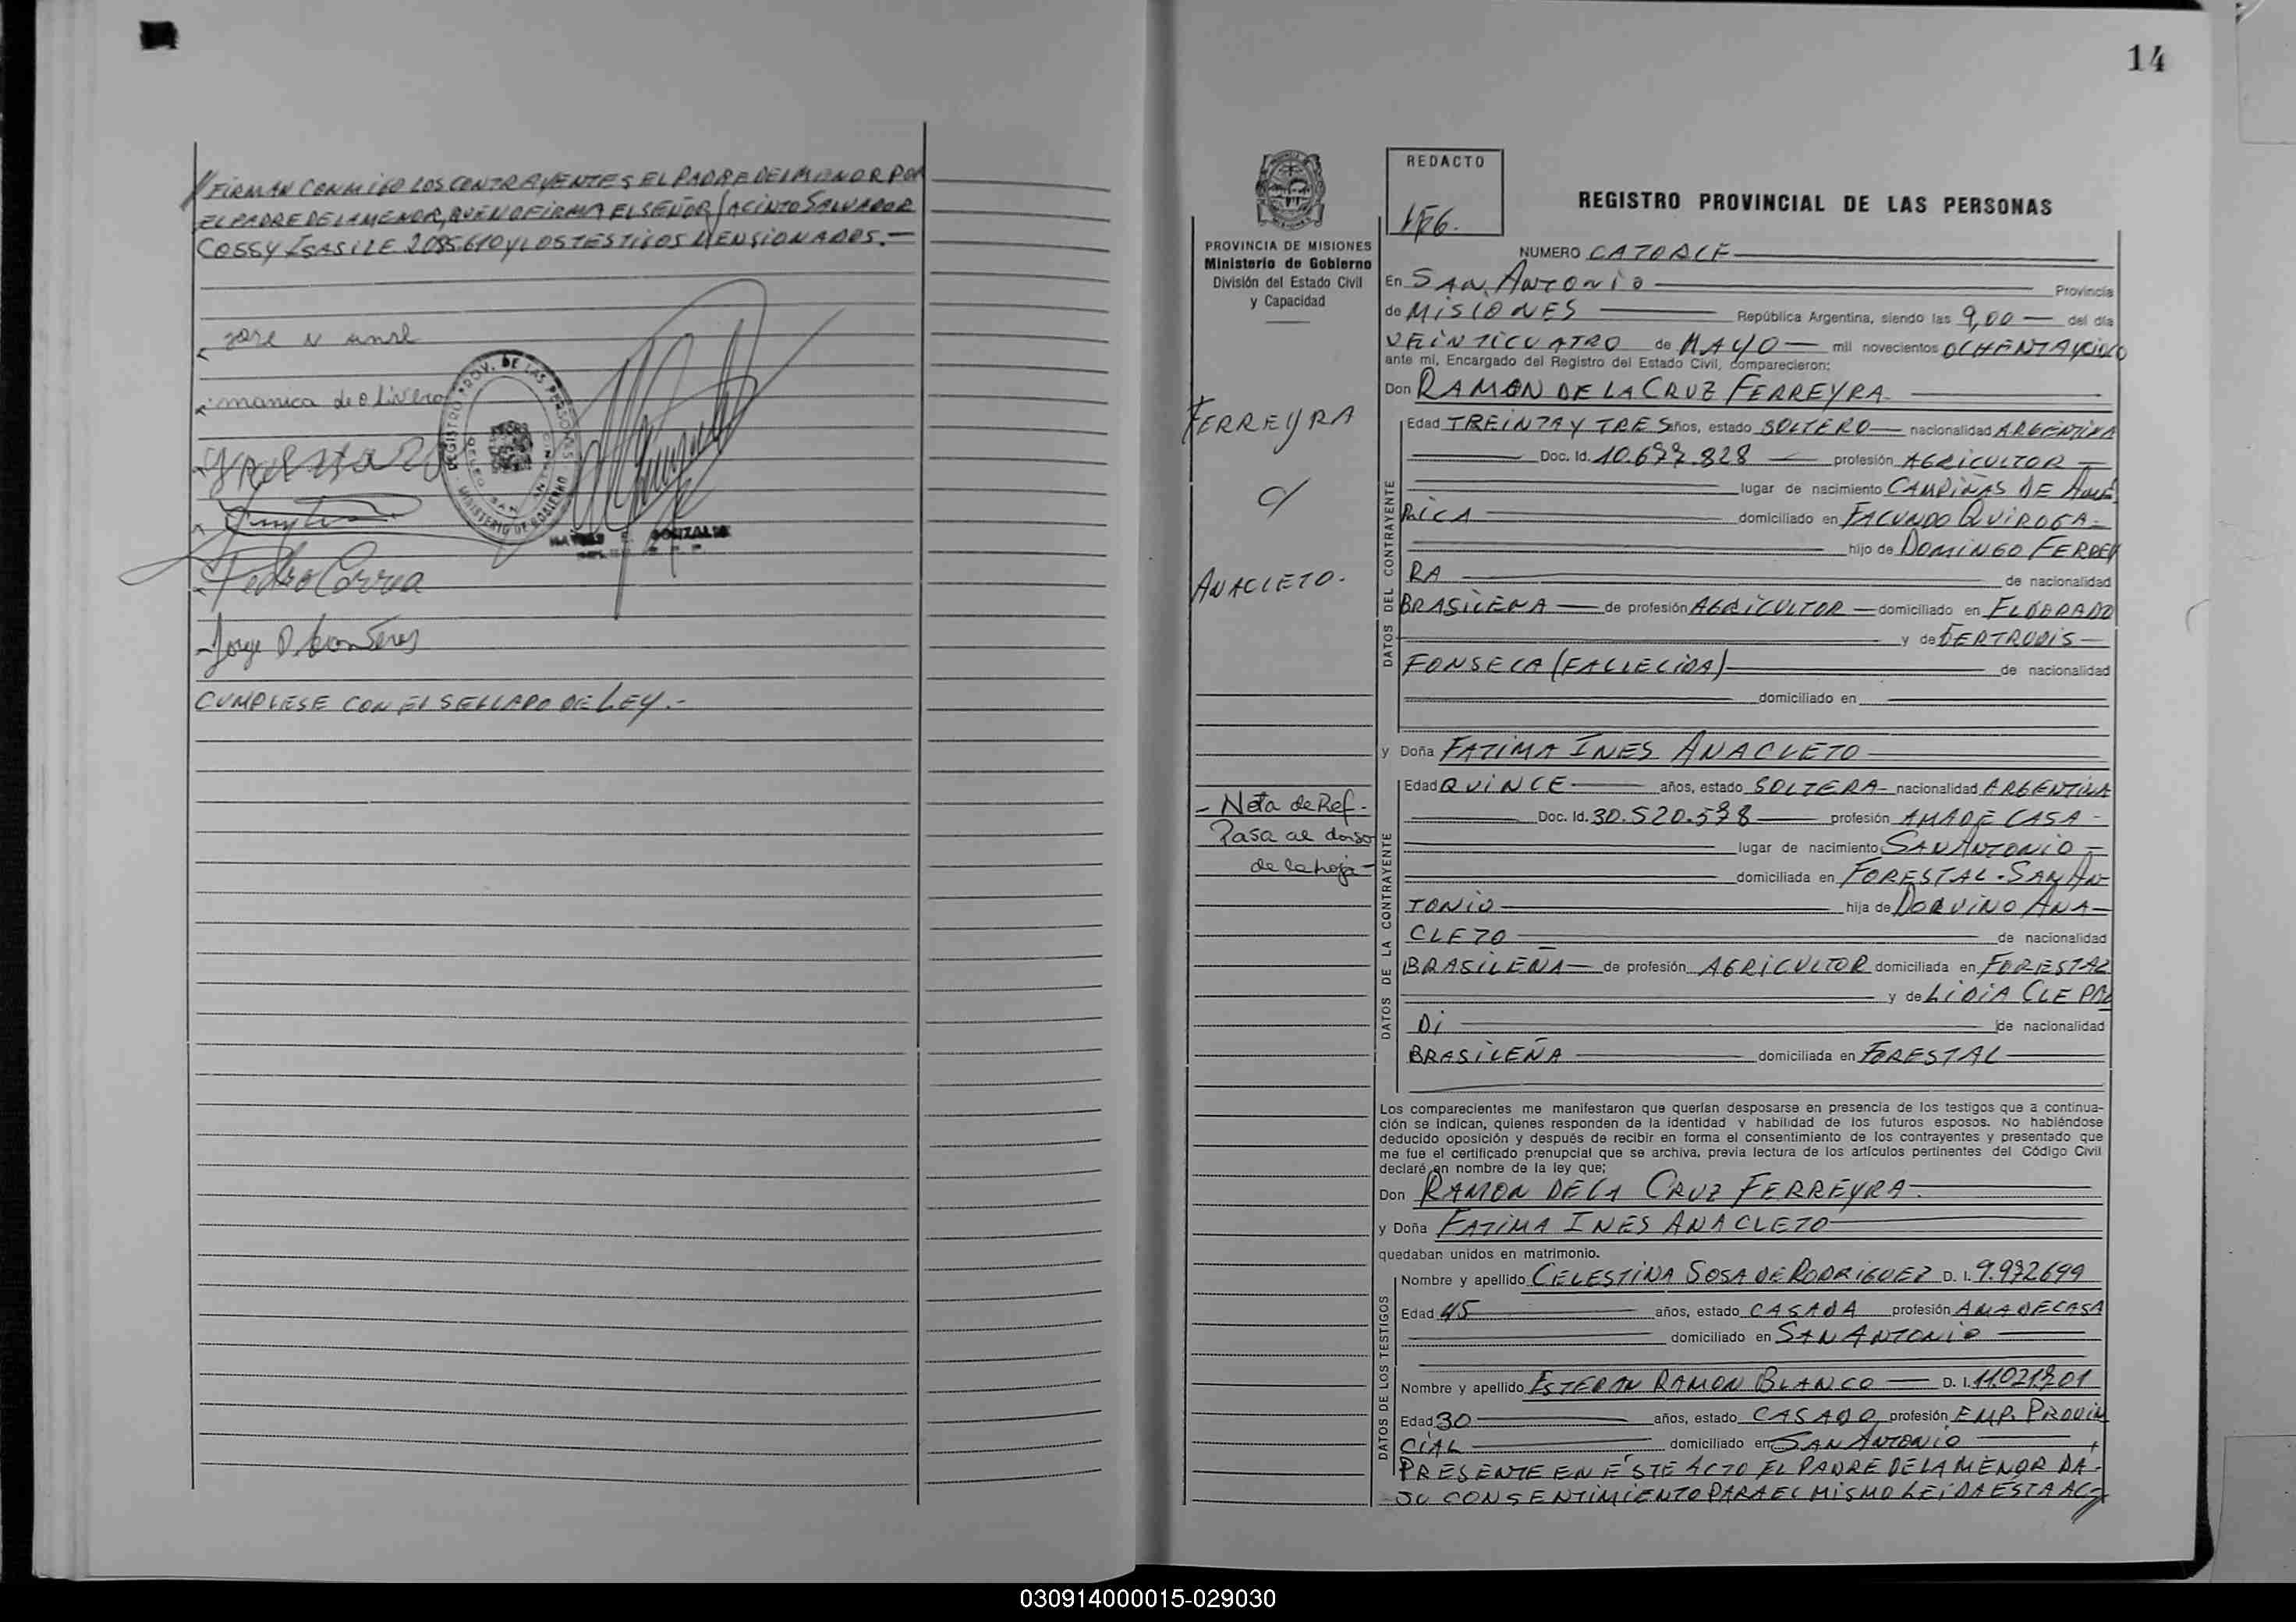 //FIRMAN CONMIGO LOS CONTRAYENTES EL PADRE DEL MENOR POR
EL PADRE DE LA MENOR, QUE NO FIRMA EL SEÑOR JACINTO SALVADOR
COSSY ISASI LE 2085610 Y LOS TESTIGOS MENSIONADOS.-
jose
manica de olivera
Pedro Correa
Jorge D.
REGISTRO PROV. DE LAS PERSONAS
MINISTERIO DE GOBIERNO
GONZALEZ
CUMPLESE CON EL SELLADO DE LEY.-
14
REDACTO
156.
REGISTRO PROVINCIAL DE LAS PERSONAS
PROVINCIA DE MISIONES
Ministerio de Gobierno
División del Estado Civil
y Capacidad
FERREYRA
c/
ANACLETO.
- Nota de Ref-
Pasa al dorso
de la hoja-
NUMERO CATORCE
En SAN ANTONIO Provincia
de MISIONES República Argentina, siendo las 9,00 del día
VEINTICUATRO de MAYO mil novecientos OCHENTAYCINCO
ante mí, Encargado del Registro del Estado Civil, comparecieron:
Don RAMON DE LA CRUZ FERREYRA
DATOS DEL CONTRAYENTE
Edad TREINTA Y TRES años, estado SOLTERO nacionalidad ARGENTINA
Doc. Id. 10.677.828 profesión AGRICULTOR
lugar de nacimiento CAMPIÑAS DE AMÉ
RICA domiciliado en FACUNDO QUIROGA-
hijo de DOMINGO FERREY
RA de nacionalidad
BRASILEÑA de profesión AGRICULTOR domiciliado en ELDORADO
y de GERTRUDIS
FONSECA (FALLECIDA) de nacionalidad
domiciliado en
y Doña FATIMA INES ANACLETO
DATOS DE LA CONTRAYENTE
Edad QUINCE años, estado SOLTERA nacionalidad ARGENTINA
Doc. Id. 30.520.578 profesión AMA DE CASA-
lugar de nacimiento SAN ANTONIO
domiciliada en FORESTAL-SAN AN
TONIO hija de DORVINO ANA-
CLETO de nacionalidad
BRASILEÑA de profesión AGRICULTOR domiciliada en FORESTAL
y de LIDIA CLE
DI de nacionalidad
BRASILEÑA domiciliada en FORESTAL
Los comparecientes me manifestaron que querían desposarse en presencia de los testigos que a continua-
ción se indican, quienes responden de la identidad y habilidad de los futuros esposos. No habiéndose
deducido oposición y después de recibir en forma el consentimiento de los contrayentes y presentado que
me fue el certificado prenupcial que se archiva, previa lectura de los artículos pertinentes del Código Civil
declaré en nombre de la ley que;
Don RAMON DE LA CRUZ FERREYRA
y Doña FATIMA INES ANACLETO
quedaban unidos en matrimonio.
DATOS DE LOS TESTIGOS
Nombre y apellido CELESTINA SOSA DE RODRIGUEZ D. I. 9.972699
Edad 45 años, estado CASADA profesión AMA DE CASA
domiciliado en SAN ANTONIO
Nombre y apellido ESTEBAN RAMON BLANCO D. I. 11.021.701
Edad 30 años, estado CASADO profesión EMP. PROVIN
CIAL domiciliado en SAN ANTONIO
PRESENTE EN ÉSTE ACTO EL PADRE DE LA MENOR DA-
SU CONSENTIMIENTO PARA EL MISMO LEÍDA ESTA AC
030914000015-029030